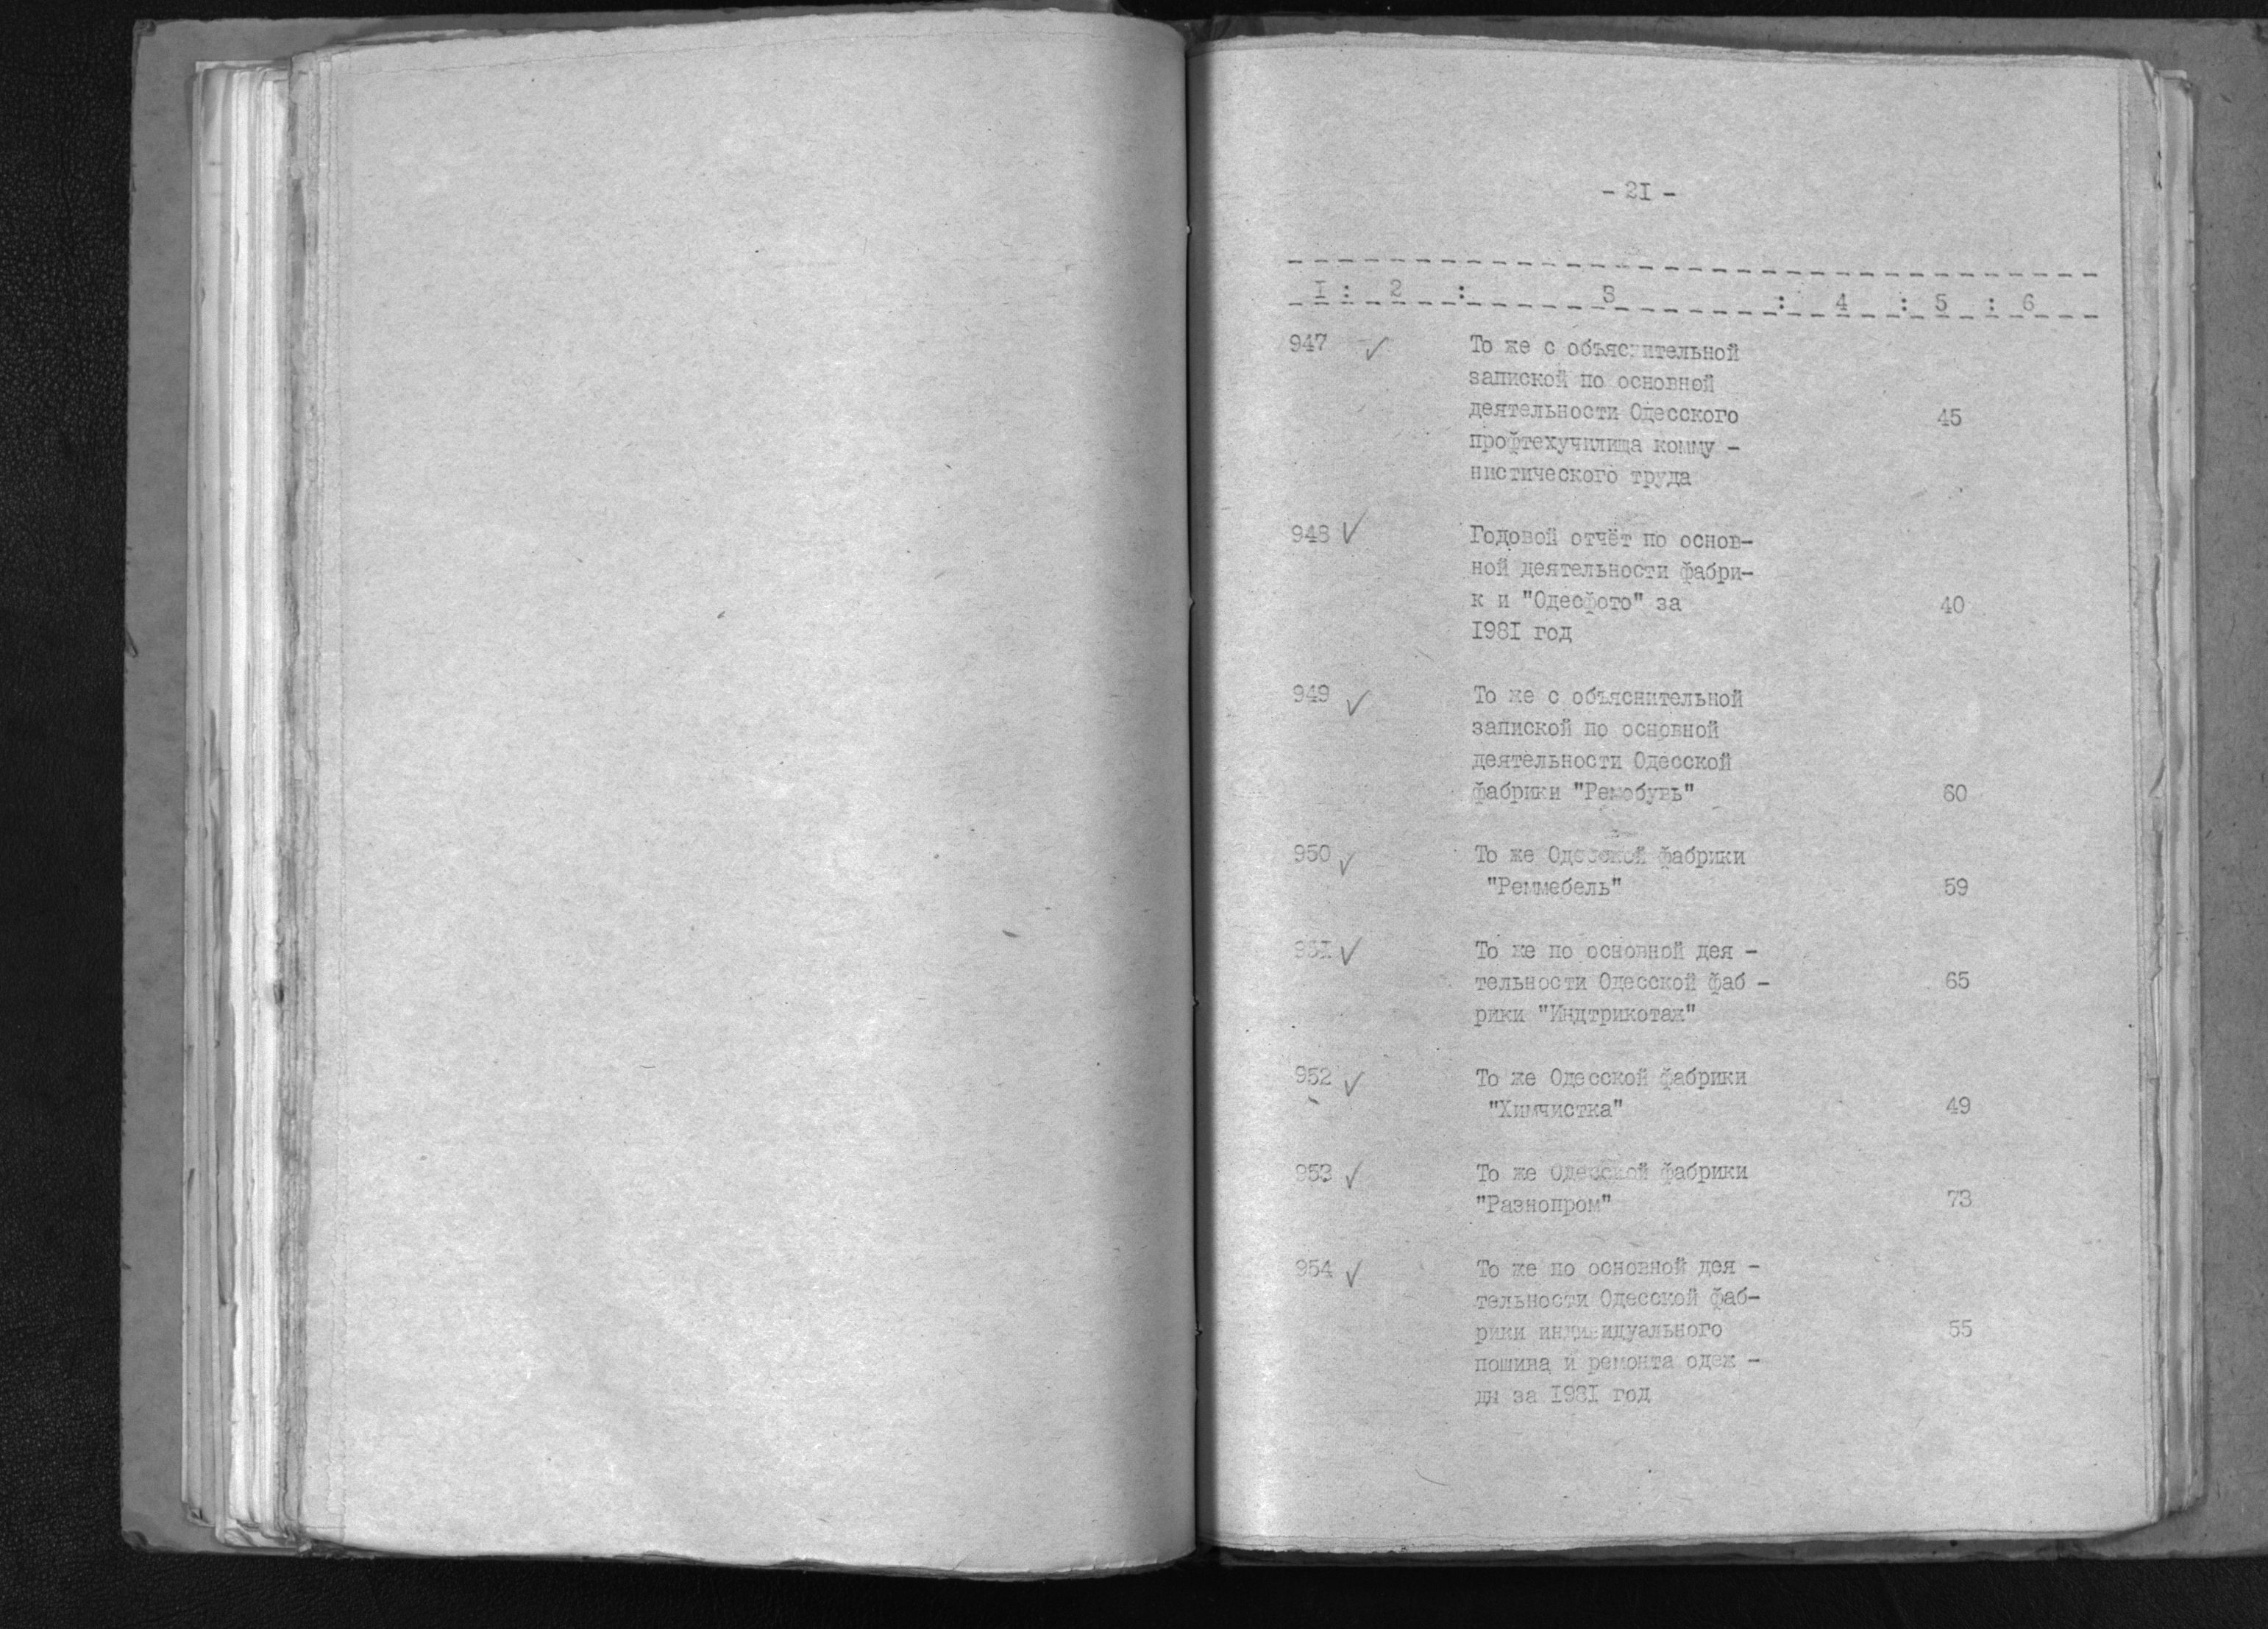 - 2I -
I : 2 : 3 : 4 : 5 : 6
947 ✓ То же с объяснительной
запиской по основной
деятельности Одесского 45
профтехучилища комму -
нистического труда
948 ✓ Годовой отчёт по основ-
ной деятельности фабри-
к и "Одесфото" за 40
I98I год
949 ✓ То же с объяснительной
запиской по основной
деятельности Одесской
фабрики "Ремобувь" 60
950 ✓ То же Одесской фабрики
"Реммебель" 59
95I ✓ То же по основной дея -
тельности Одесской фаб - 65
рики "Индтрикотаж"
952 ✓ То же Одесской фабрики
"Химчистка" 49
953 ✓ То же Одесской фабрики
"Разнопром" 73
954 ✓ То же по основной дея -
тельности Одесской фаб-
рики индивидуального 55
пошива и ремонта одеж -
ды за I98I год